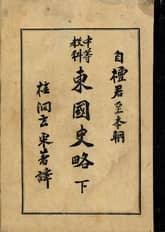 自檀君至本朝
中等
敎科
東國史略 下
桂洞玄采著譯